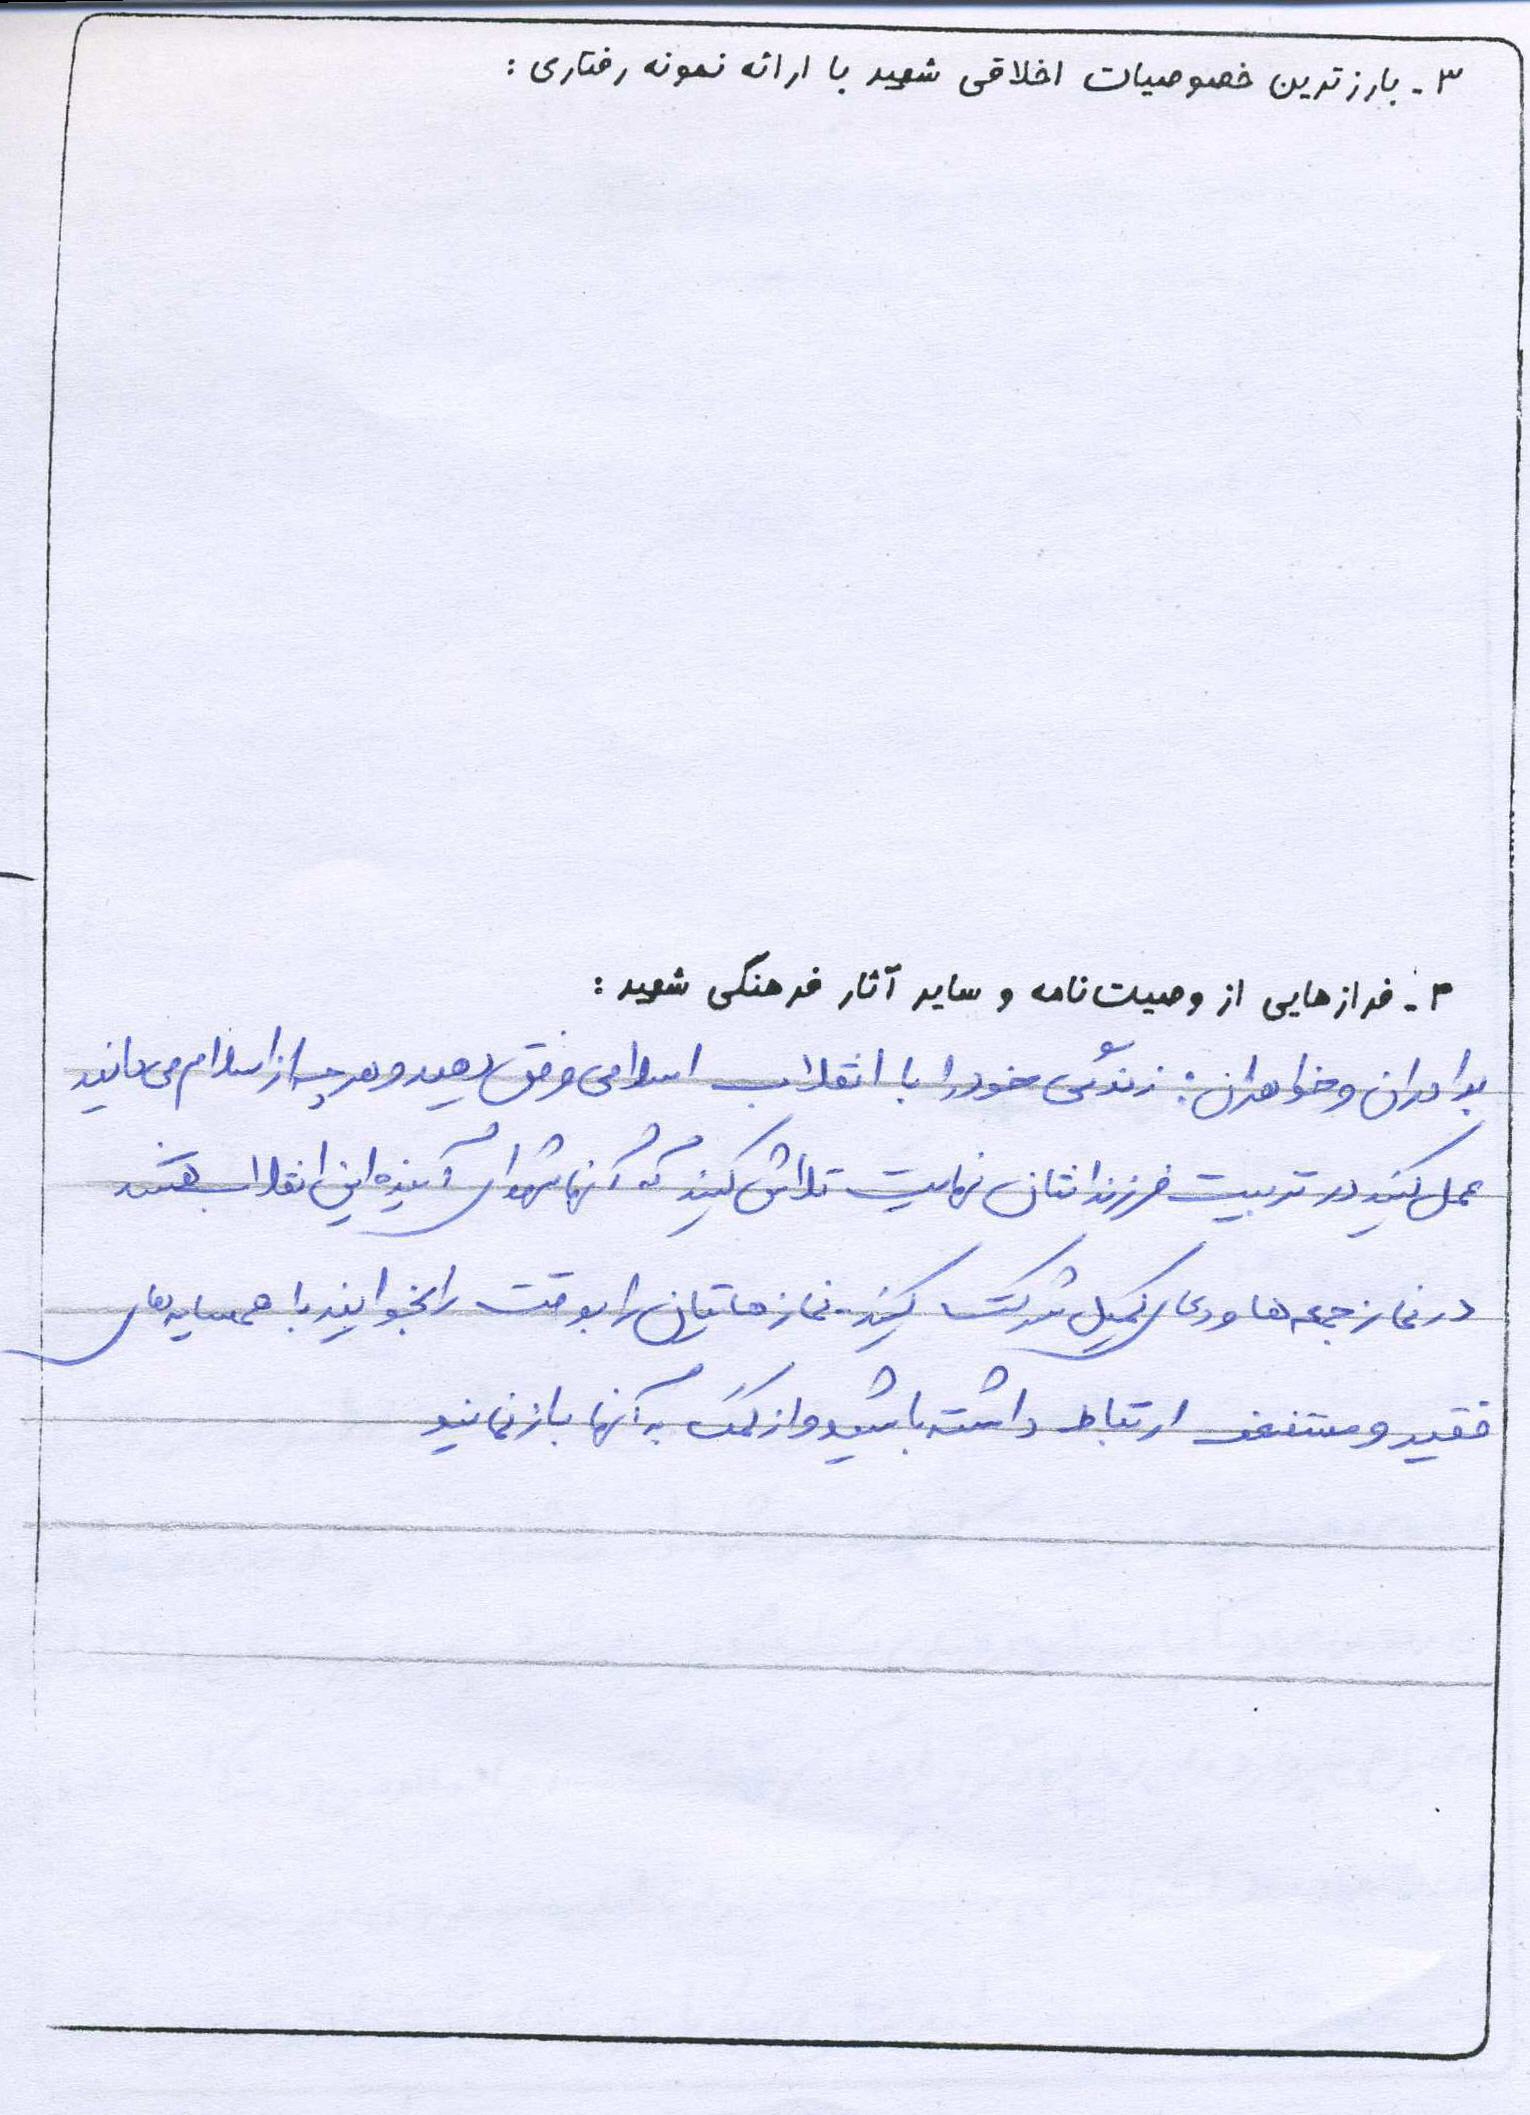 ۳- بارزترین خصوصیات اخلاقی شهید با ارائه نمونه رفتاری :
۴- فرازهایی از وصیت‌نامه و سایر آثار فرهنگی شهید :
برادران و خواهران: زندگی خود را با انقلاب اسلامی وفق دهید و هر چه از اسلام می دانید
عمل کنید در تربیت فرزندانتان نهایت تلاش کنید که آنها شهدای آینده این انقلاب هستند
در نماز جمعه ها و دعای کمیل شرکت کنید. نمازهایتان را بوقت را بخوانید با همسایه های
فقیر و مستضعف ارتباط داشته باشید و از کمک به آنها باز نمانید